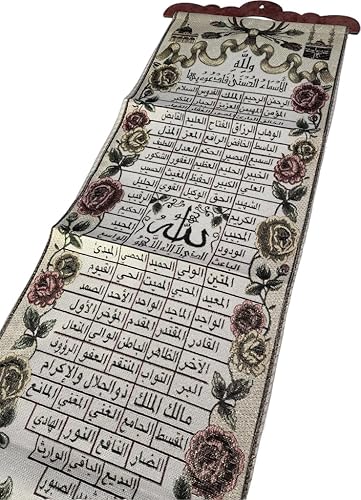 ولله
الأسماء الحسنى فادعوه بها
الرحمن الرحيم الملك القدوس السلام
المؤمن المهيمن العزيز الجبار المتكبر
الوهاب الرزاق الفتاح العليم القابض
الباسط الخافض الرافع المعز المذل
السميع البصير الحكم العدل اللطيف
الخبير الحليم العظيم الغفور الشكور
العلي الكبير الحفيظ المقيت الحسيب
الجليل
الرقيب
المجيب
الودود
الباعث
الشهيد الحق الوكيل القوي
الله
المتين الولي الحميد المحصي المبدئ
المعيد المحيي المميت الحي القيوم
الواجد الماجد الواحد الأحد الصمد
القادر المقتدر المقدم المؤخر الأول
الآخر الظاهر الباطن الوالي المتعال
البر التواب المنتقم العفو الرؤوف
مالك الملك ذو الجلال والإكرام
المقسط الجامع الغني المغني المانع
الضار النافع النور الهادي
البديع الباقي الوارث
الصبور